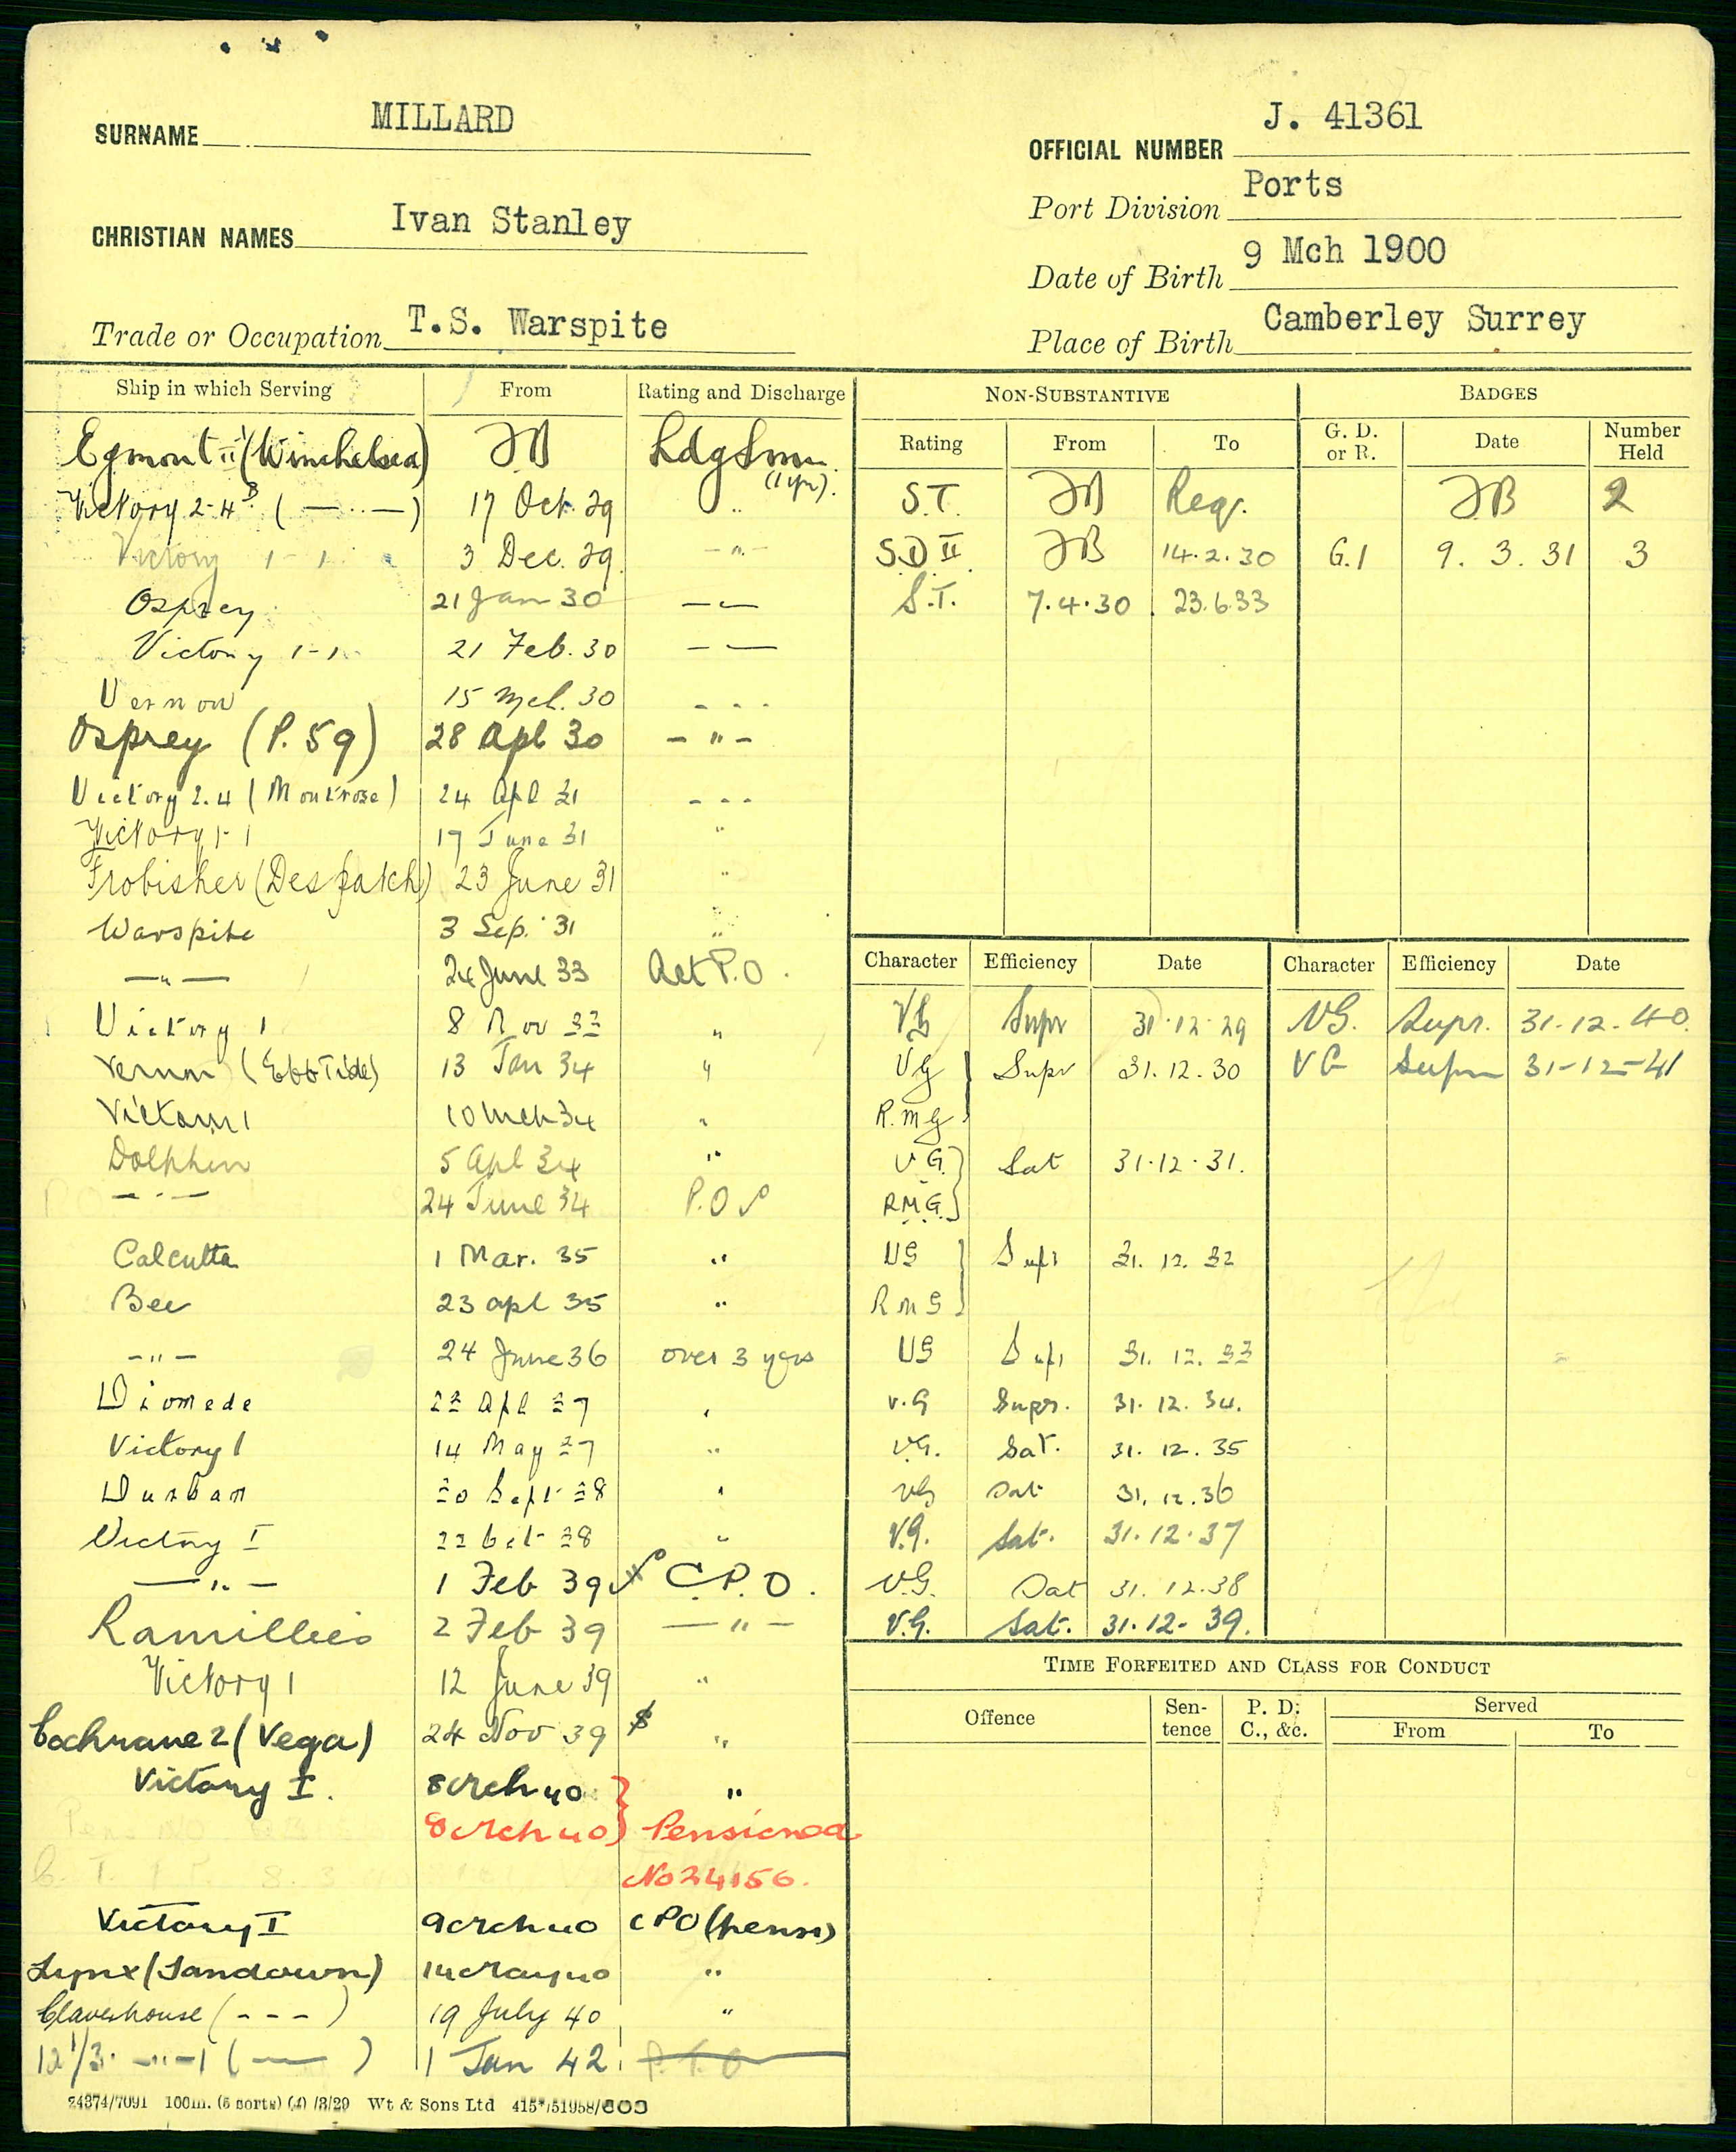 SURNAME MILLARD
OFFICIAL NUMBER J. 41361
Port Division Ports
CHRISTIAN NAMES Ivan Stanley
Date of Birth 9 Mch 1900
Trade or Occupation T.S. Warspite
Place of Birth Camberley Surrey
Ship in which Serving From Rating and Discharge
Egmont II (Winchelsea) JB Ldg Smn (1 yr).
Victory 2-4 ( — .. — ) 17 Oct. 29 "
Victory 1-1 3 Dec. 29 - " -
Osprey 21 Jan 30 — —
Victory 1-1 21 Feb. 30 — —
Vernon 15 Mch. 30 - - -
Osprey (P. 59) 28 Apl 30 - " -
Victory 2.4 (Montrose) 24 Apl 31 - - -
Victory 1-1 17 June 31 "
Frobisher (Despatch) 23 June 31 "
Warspite 3 Sep. 31 "
— " — 24 June 33 Act P.O.
Victory 1 8 Nov 33 "
Vernon (Ebb Tide) 13 Jan 34 "
Victory 1 10 Mch 34 "
Dolphin 5 Apl 34 "
— " — 24 June 34 P.O
Calcutta 1 Mar. 35 "
Bee 23 Apl 35 "
- " - 24 June 36 over 3 yers
Diomede 22 Apl 37 "
Victory 1 14 May 37 "
Durban 20 Sept 38 "
Victory I 22 Oct 38 "
— " — 1 Feb 39 C.P.O.
Ramillies 2 Feb 39 — " —
Victory 1 12 June 39 "
Cochrane 2 (Vega) 24 Nov 39 "
Victory I. 8 Mch 40 "
8 Mch 40 Pensioned
No 24156.
Victory I 9 Mch 40 CPO (pens)
Lynx (Sandown) 14 May 40 "
Claverhouse ( - - - ) 19 July 40 "
12 1/3. - " - 1 ( — ) 1 Jan 42 P. T. O
24374/7091 100m. (5 sorts) (4) /3/29 Wt & Sons Ltd 415*/51958/603
NON-SUBSTANTIVE
Rating From To
S.T. JB Req.
S.D II JB 14.2.30
S.T. 7.4.30. 23.6.33
BADGES
G. D. or R. Date Number Held
JB 2
G.1 9. 3. 31 3
Character Efficiency Date Character Efficiency Date
VG Supr 31.12.29 VG. Supr. 31.12.40.
VG Supr 31.12.30 VG Supr 31-12-41
R.M.G
V.G. Sat 31.12.31.
R.M.G.
VG Supr 31. 12. 32
R M G
VG Supr 31. 12. 33
V.G Supr. 31. 12. 34.
V.G. Sat. 31. 12. 35
VG Sat 31. 12. 36
V.G. Sat. 31.12.37
V.G. Sat 31. 12.38
V.G. Sat. 31.12-39.
TIME FORFEITED AND CLASS FOR CONDUCT
Offence Sen-tence P. D: C., &c. Served
From To